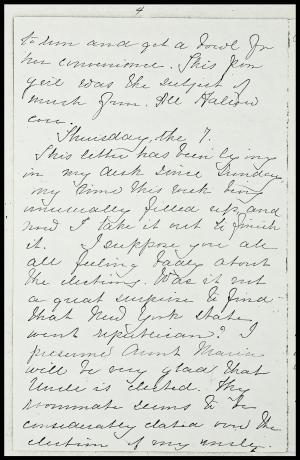 4
to him and get a bowl for
her convenience. This poor
girl was the subject of
much fun. All Hallow
eve.
Thursday, the 7.
This letter has been lying
in my desk since Sunday,
my time this week being
unusually filled up, and
now I take it out to finish
it. I suppose you all
all feeling badly about
the elections. Was it not
a great surprise to find
that New York state
went republican? I
presume Aunt Maria
will be very glad that
Uncle is elected. My
roommate seems to be
considerably elated over the
election of my uncle.